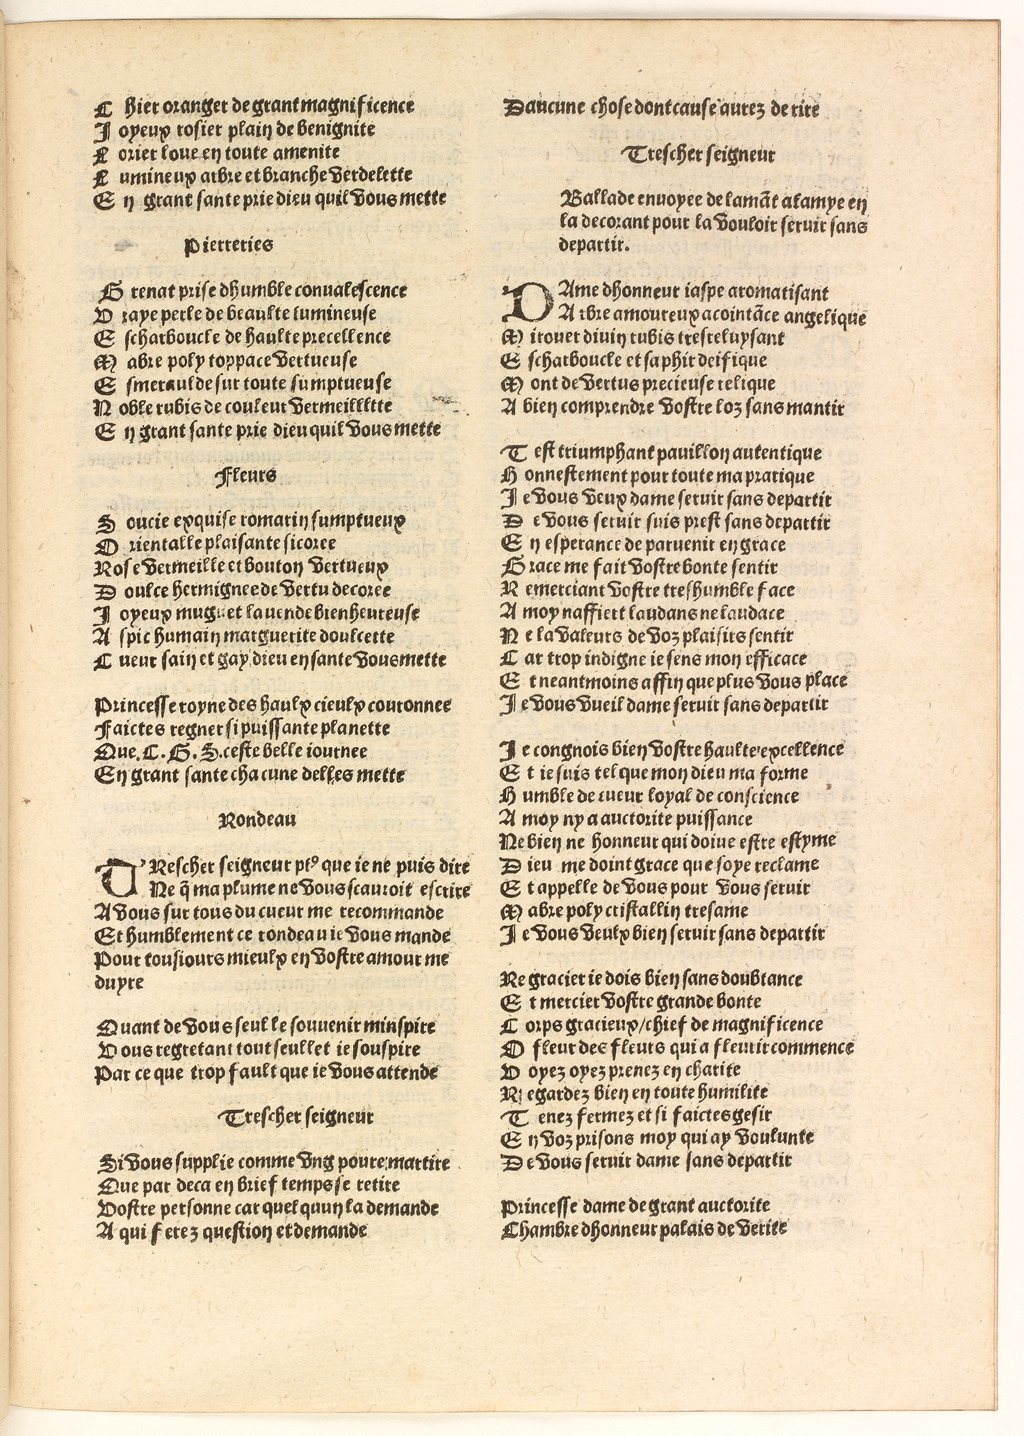 C hier oranger de grant magnificence
J oyeux rosier plain de benignite
L orier loue en toute amenite
L umineux arbre et branche verdelette
E n grant sante prie dieu quil vous mette
Pierreries
G renat prise dhumble conualescence
V raye perle de beaulte lumineuse
E scharboucle de haulte precellence
M abre poly toppace vertueuse
E smeraulde sur toute sumptueuse
N oble rubis de couleur vermeillltte
E n grant sante prie dieu quil vous mette
Fleurs
S oucie exquise romarin sumptueux
O rientalle plaisante sicoree
Rose vermeille et bouton vertueux
D oulce hermignee de vertu decoree
J oyeux muguet lauende bienheureuse
A spic humain marguerite doulcette
C ueur sain et gay dieu en sante vous mette
Princesse royne des haulx cieulx couronnee
Faictes regner si puissante planette
Que. C. G. S. ceste belle iournee
En grant sante chacune delles mette
Rondeau
TRescher seigneur pl9 que ie ne puis dire
Ne q̄ ma plume ne vous scauroit escrire
A vous sur tous du cueur me recommande
Et humblement ce rondeau ie vous mande
Pour tousiours mieulx en vostre amour me
duyre
Quant de vous seul le souuenir minspire
Vous regretant tout seullet ie souspire
Par ce que trop fault que ie vous attende
Trescher seigneur
Si vous supplie comme vng poure martire
Que par deca en brief temps se retire
Vostre personne car quelquun la demande
A qui ferez question et demande
Daucune chose dont cause aurez de rire
Trescher seigneur
Ballade enuoyee de lamāt a lamye en
la decorant pour la vouloir seruir sans
departir.
DAme dhonneur iaspe aromatisant
A rbre amoureux acointāce angelique
M irouer diuin rubis tresreluysant
E scharboucle et saphir deifique
M ont de vertus precieuse relique
A bien comprendre vostre loz sans mantir
T est triumphant pauillon autentique
H onnestement pour toute ma pratique
J e vous veux dame seruir sans departir
D e vous seruir suis prest sans departir
E n esperance de paruenir en grace
G race me fait vostre bonte sentir
R emerciant vostre treshumble face
A moy naffiert laudans ne laudace
N e la valeurs de voz plaisirs sentir
C ar trop indigne ie sens mon efficace
E t neantmoins affin que plus vous place
J e vous vueil dame seruir sans departir
J e congnois bien vostre haulte excellence
E t ie suis tel que mon dieu ma forme
H umble de cueur loyal de conscience
A moy ny a auctorite puissance
Ne bien ne honneur qui doiue estre estyme
D ieu me doint grace que soye reclame
E t appelle de vous pour vous seruir
M abre poly cristallin tresame
J e vous veulx bien seruir sans departir
Regracier ie dois bien sans doubtance
E t mercier vostre grande bonte
C orps gracieux/chief de magnificence
O fleur des fleurs qui a fleurir commence
V oyez oyez prenez en charite
R egardez bien en toute humilite
T enez fermez et si faictes gesir
E n voz prisons moy qui ay voulunte
De vous seruir dame sans departir
Princesse dame de grant auctorite
Chambre dhonneur palais de verite